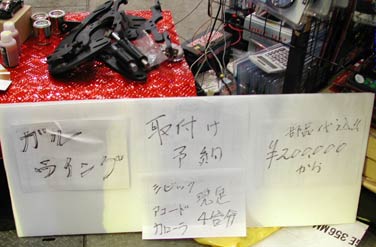 ガル
ウイング
取付け
予約
シビック
アコード
カローラ
限定
4台分
部品代込み
¥200,000
から